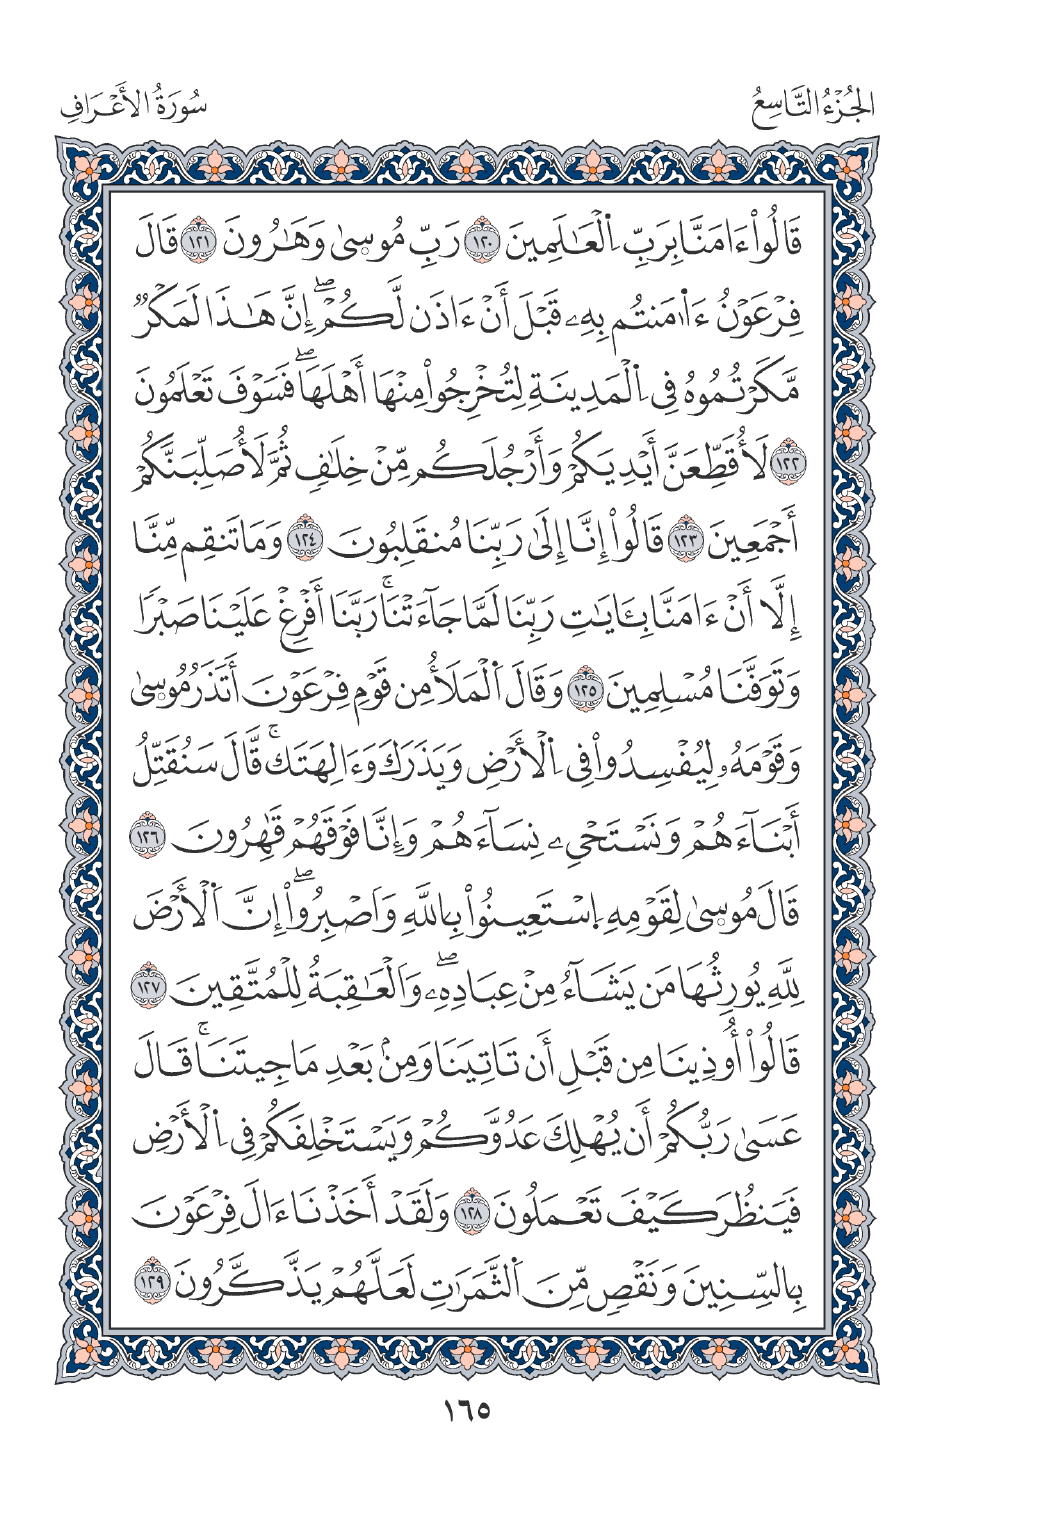 الجُزْءُ التَّاسِعُ
سُورَةُ الأَعْرَافِ
قَالُوا۟ ءَامَنَّا بِرَبِّ اِ۬لْعَٰلَمِينَ ١٢٠ رَبِّ مُوسۭيٰ وَهَٰرُونَ ١٢١ قَالَ
فِرْعَوْنُ ءَا۬مَنتُم بِهِۦ قَبْلَ أَنْ ءَاذَن لَّكُمْۖ إِنَّ هَٰذَا لَمَكْرٞ
مَّكَرْتُمُوهُ فِي اِ۬لْمَدِينَةِ لِتُخْرِجُوا۟ مِنْهَا أَهْلَهَاۖ فَسَوْفَ تَعْلَمُونَ
١٢٢ لَأُقَطِّعَنَّ أَيْدِيَكُمْ وَأَرْجُلَكُم مِّنْ خِلَٰفٖ ثُمَّ لَأُصَلِّبَنَّكُمْ
أَجْمَعِينَ ١٢٣ قَالُوا۟ إِنَّا إِلَىٰ رَبِّنَا مُنقَلِبُونَ ١٢٤ وَمَا تَنقِم مِّنَّا
إِلَّا أَنْ ءَامَنَّا بِـَٔايَٰتِ رَبِّنَا لَمَّا جَآءَتْنَاۚ رَبَّنَا أَفْرِغْ عَلَيْنَا صَبْرٗا
وَتَوَفَّنَا مُسْلِمِينَ ١٢٥ وَقَالَ اَ۬لْمَلَأُ مِن قَوْمِ فِرْعَوْنَ أَتَذَرُ مُوسۭيٰ
وَقَوْمَهُۥ لِيُفْسِدُوا۟ فِي اِ۬لْأَرْضِ وَيَذَرَكَ وَءَالِهَتَكَۚ قَّالَ سَنُقَتِّلُ
أَبْنَآءَهُمْ وَنَسْتَحْيِۦ نِسَآءَهُمْ وَإِنَّا فَوْقَهُمْ قَٰهِرُونَ ١٢٦
قَالَ مُوسۭيٰ لِقَوْمِهِ اِ۪سْتَعِينُوا۟ بِاللَّهِ وَاَصْبِرُوا۟ۖ إِنَّ اَ۬لْأَرْضَ
لِلَّهِ يُورِثُهَا مَن يَشَآءُ مِنْ عِبَادِهِۦۖ وَاَلْعَٰقِبَةُ لِلْمُتَّقِينَ ١٢٧
قَالُوا۟ أُوذِينَا مِن قَبْلِ أَن تَاتِيَنَا وَمِنۢ بَعْدِ مَا جِيتَنَاۚ قَالَ
عَسَىٰ رَبُّكُمْ أَن يُهْلِكَ عَدُوَّكُمْ وَيَسْتَخْلِفَكُمْ فِي اِ۬لْأَرْضِ
فَيَنظُرَ كَيْفَ تَعْمَلُونَ ١٢٨ وَلَقَدْ أَخَذْنَا ءَالَ فِرْعَوْنَ
بِالسِّنِينَ وَنَقْصٖ مِّنَ اَ۬لثَّمَرَٰتِ لَعَلَّهُمْ يَذَّكَّرُونَ ١٢٩
١٦٥